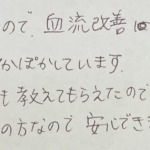 ので、血流改善
かぽかしています。
も教えてもらえたので
の方なので安心でき